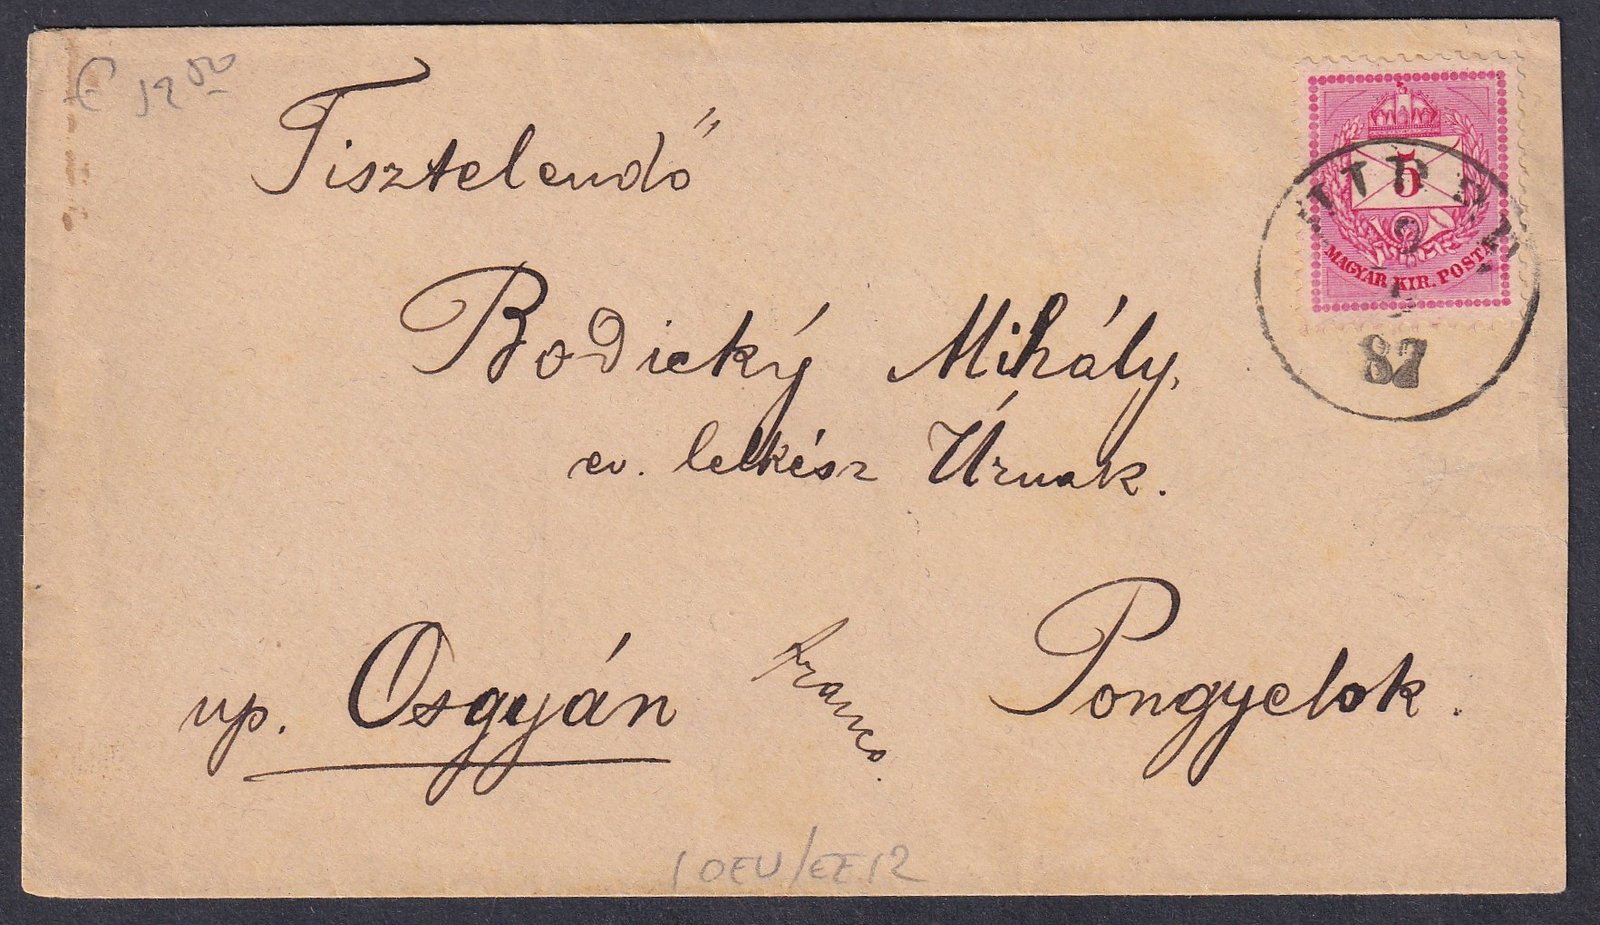 € 12 50
Tisztelendő
5
MAGYAR KIR. POSTA
87
Bodický Mihály,
ev. lelkész Úrnak.
up. Osgyán
franco.
Pongyelok.
10EU/EZ12